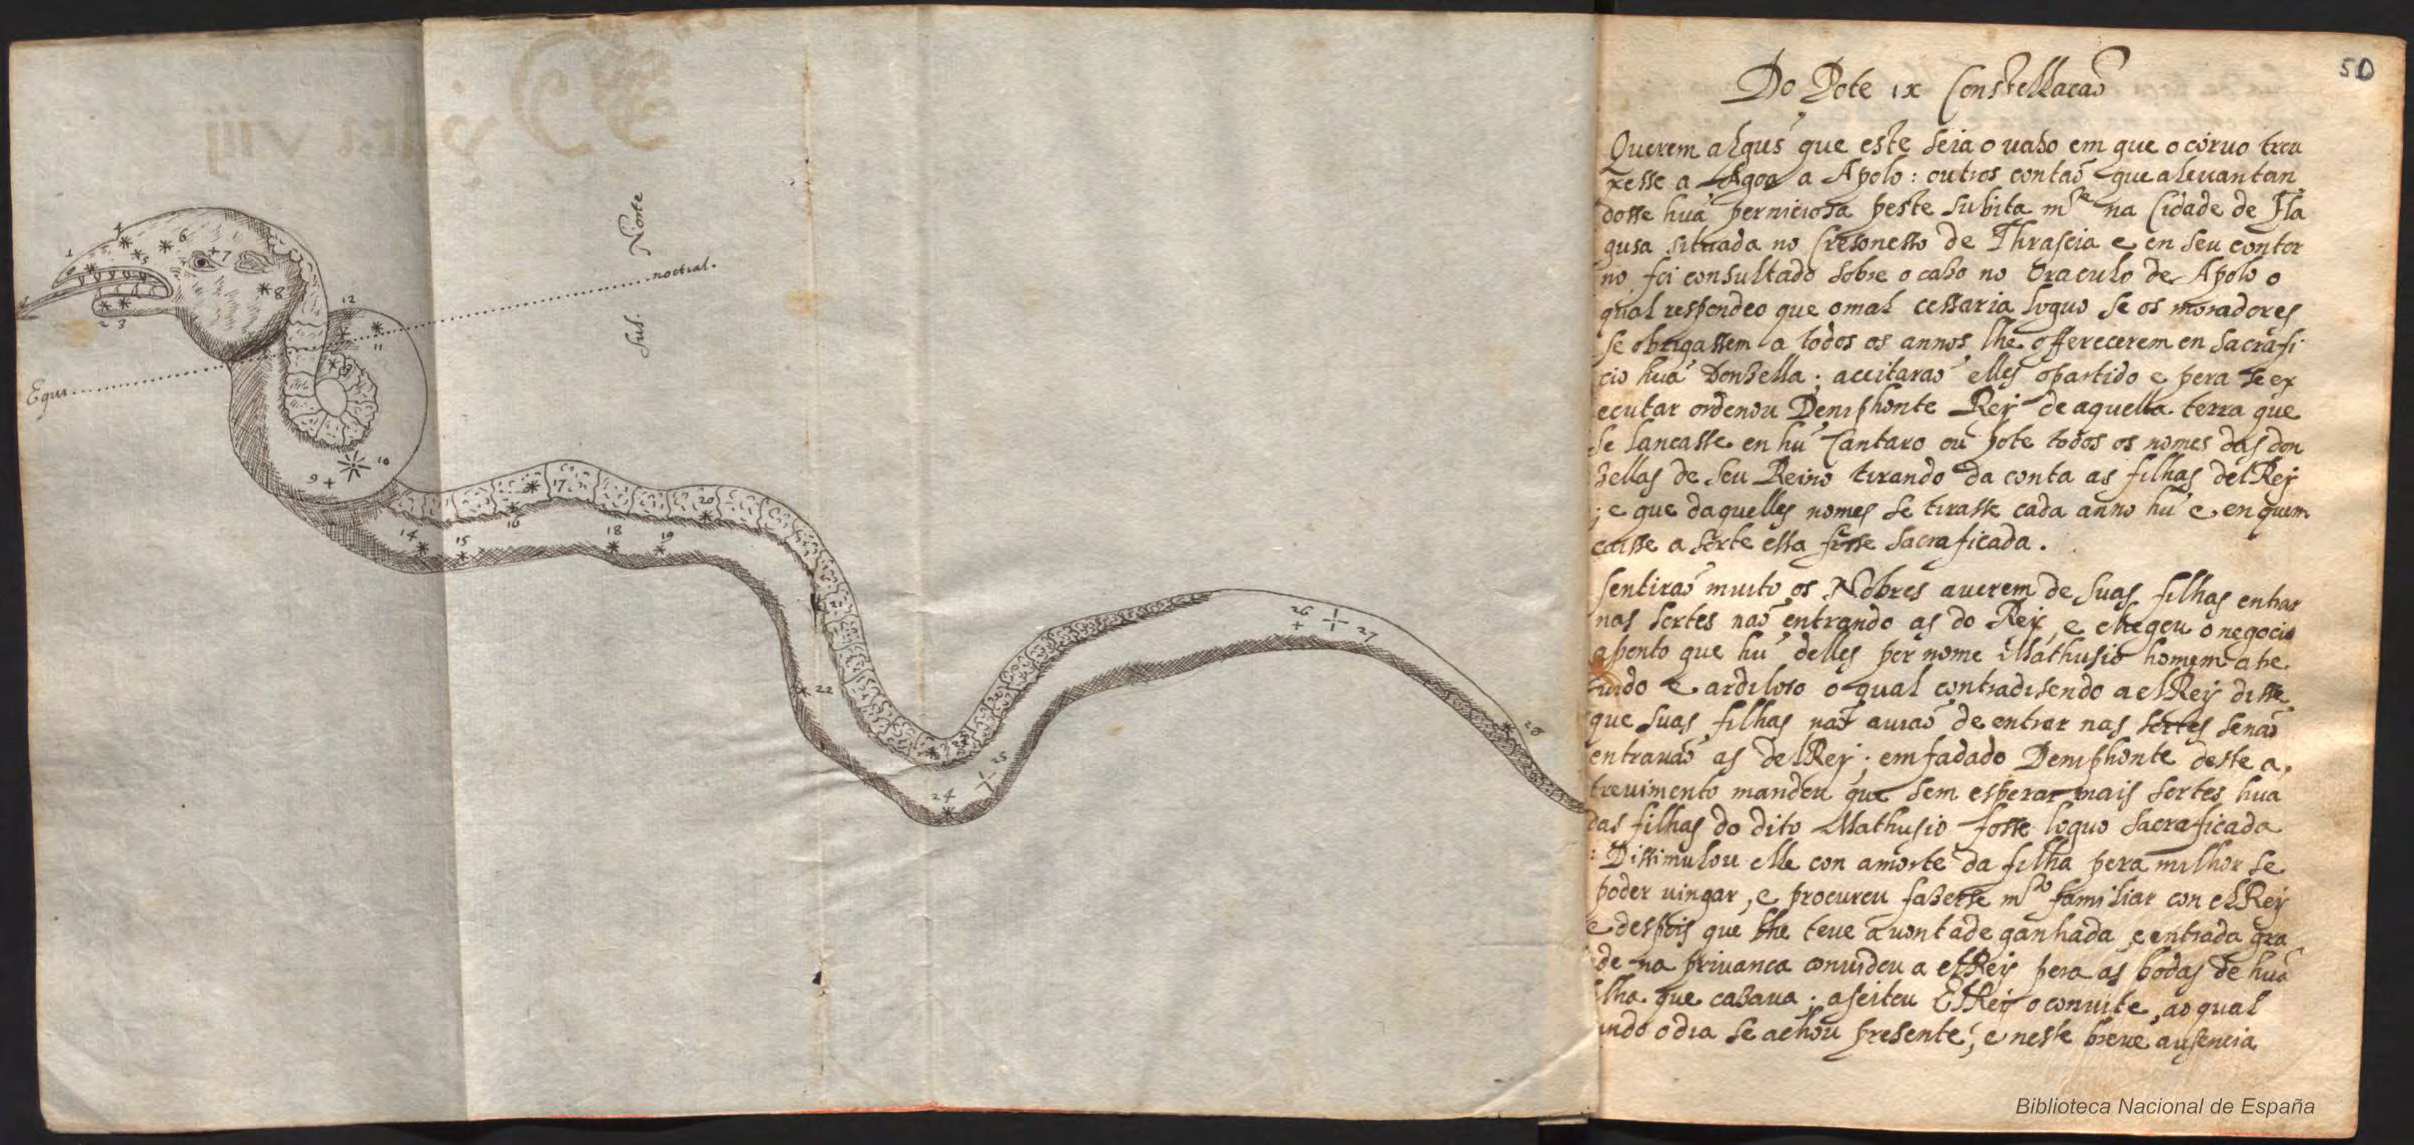 Norte
Sul.
noctial.
Equi
1
2
3
4
5
6
7
8
12
11
13
10
9
14
15
16
17
18
19
20
22
23
24
25
26
27
28
50
Do Pote ix Constellacaõ
Querem algus que este seia o vaso em que o corvo trou
xesse a Agoa a Apolo: outros contaõ que alevantan
dosse huã perniciosa peste subita m.te na Cidade de Fla
gusa situada no Cresonesso de Thrascia e en seu contor
no, foi consultado sobre o caso no Oraculo de Apolo o
qual respondeo que o mal cessaria loguo se os moradores
se obrigassem a todos os annos lhe offerecerem en sacrafi
cio huã Donzella; aceitaraõ elles o partido e pera se ex
ecutar ordenou Demiphonte Rey de aquella terra que
se lancasse en hũ Cantaro ou pote todos os nomes das don
zellas de seu Reino tirando da conta as filhas del Rey
; e que daquelles nomes se tirasse cada anno hũ e en quem
caisse a sorte essa fosse sacraficada.
Sentiraõ muito os Nobres averem de suas filhas entrar
nas sortes naõ entrando as do Rey, e chegou o negocio
a ponto que hũ delles por nome Mathusio homem atre
uido e ardiloso o qual contradisendo a el Rey disse
que suas filhas naõ aviaõ de entrar nas sortes senaõ
entravaõ as del Rey; emfadado Demiphonte deste a
trevimento mandou que sem esperar mais sortes hua
das filhas do dito Mathusio fosse loguo sacraficada
: Dissimulou elle con a morte da filha pera milhor se
poder vingar, e procurou faserse m.to familiar con el Rey
e despois que lhe teve a vontade ganhada, e entrada gra
de na privanca convidou a el Rey pera as bodas de huã
lha que casava; aseitou El Rey o convite, ao qual
ndo o dia se achou presente, e neste breve ausencia
Biblioteca Nacional de España